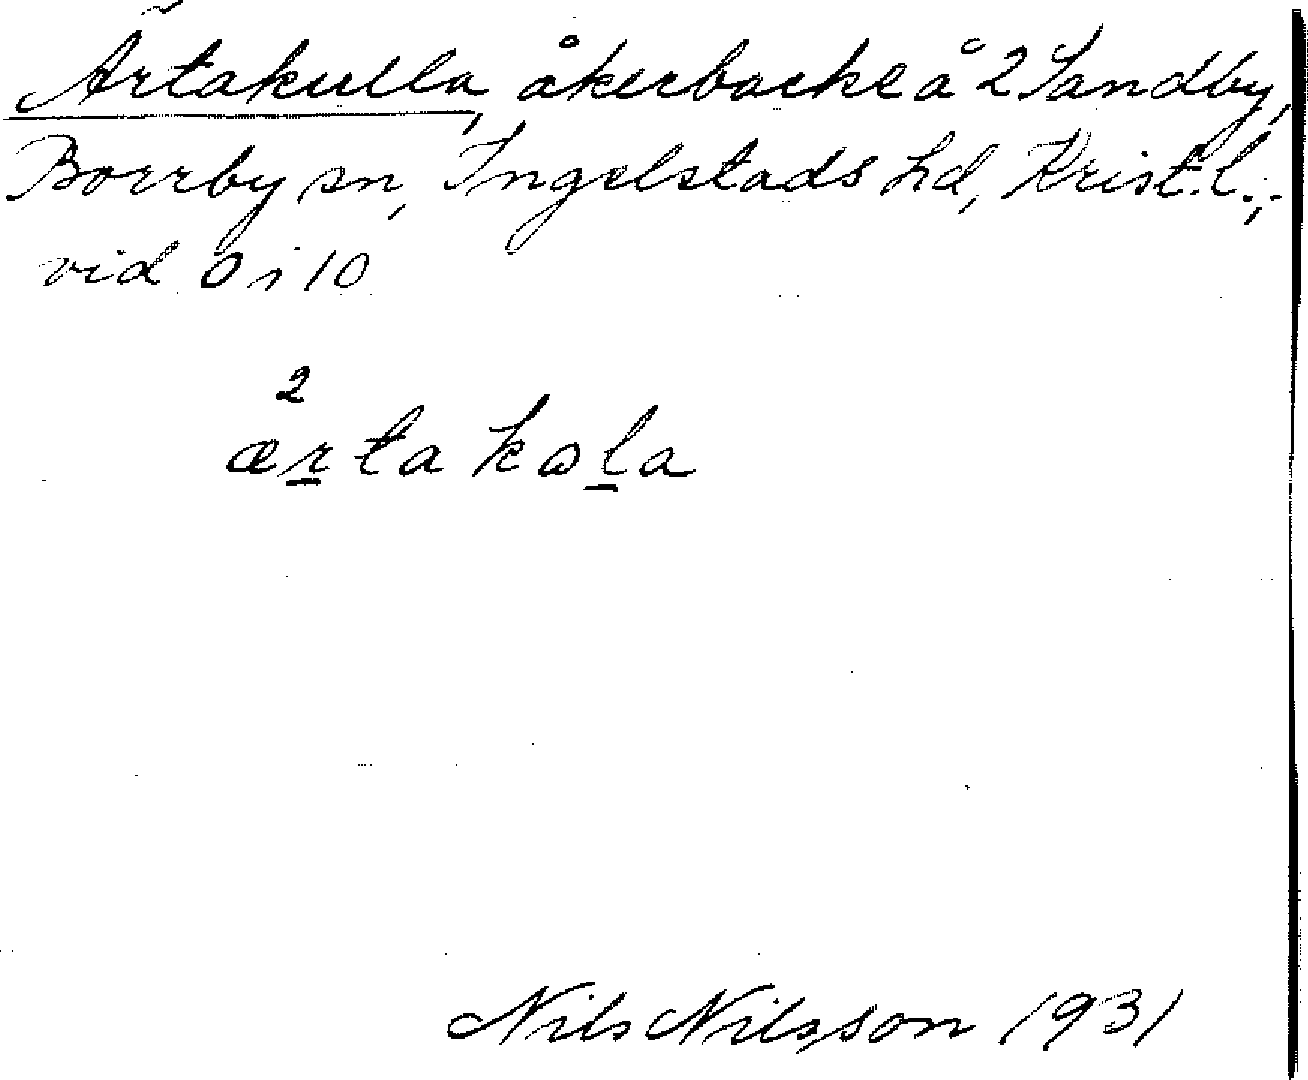 Ärtakulla, åkerbacke å 2 Sandby,
Borrby sn, Ingelstads hd, Krist. l.;
vid 0 i 10
2
ærta kola
Nils Nilsson 1931